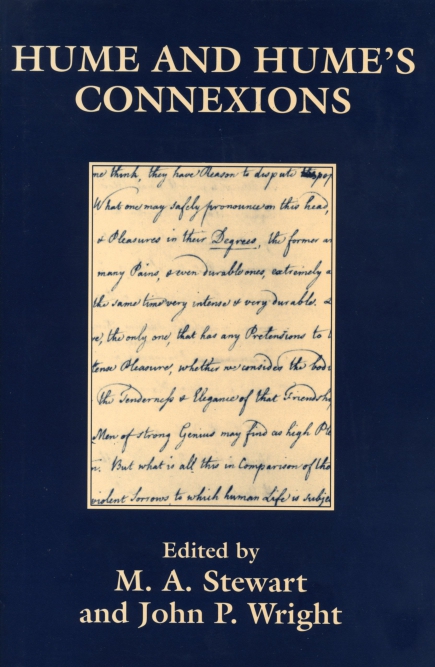 HUME AND HUME'S
CONNEXIONS
me think, they have Reason to dispute
What one may safely pronounce on this head,
& Pleasures in their Degrees, the former ar
many Pains, & even durable ones, extremely a
the same time very intense & very durable. &
re, the only one that has any Pretensions to
tense Pleasure, whether we consider the bod
the Tenderness & Elegance of that Friendsh
Men of strong Genius may find as high Ple
n. But what is all this in Comparison of tho
violent Sorrows to which human Life is subje
Edited by
M. A. Stewart
and John P. Wright